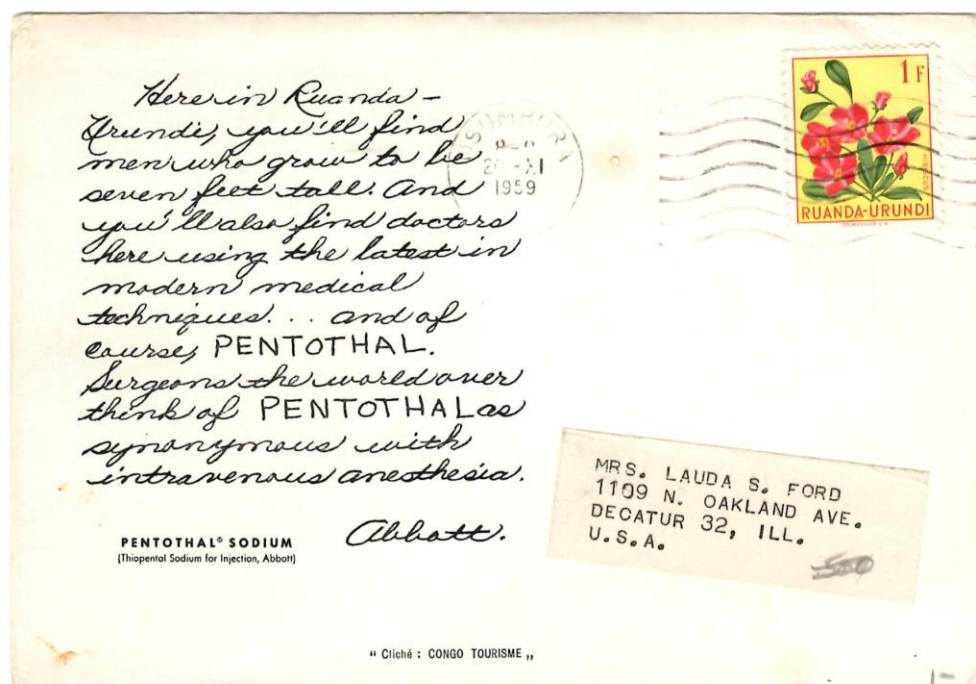 Here in Ruanda-
Urundi, you'll find
men who grow to be
seven feet tall. And
you'll also find doctors
here using the latest in
modern medical
techniques... and of
course, PENTOTHAL.
Surgeons the world over
think of PENTOTHAL as
synonymous with
intravenous anesthesia.
Abbott.
PENTOTHAL® SODIUM
(Thiopental Sodium for Injection, Abbott)
USUMBURA
20 - XI
1959
1 F
RUANDA-URUNDI
MRS. LAUDA S. FORD
1109 N. OAKLAND AVE.
DECATUR 32, ILL.
U.S.A.
"Cliché : CONGO TOURISME„